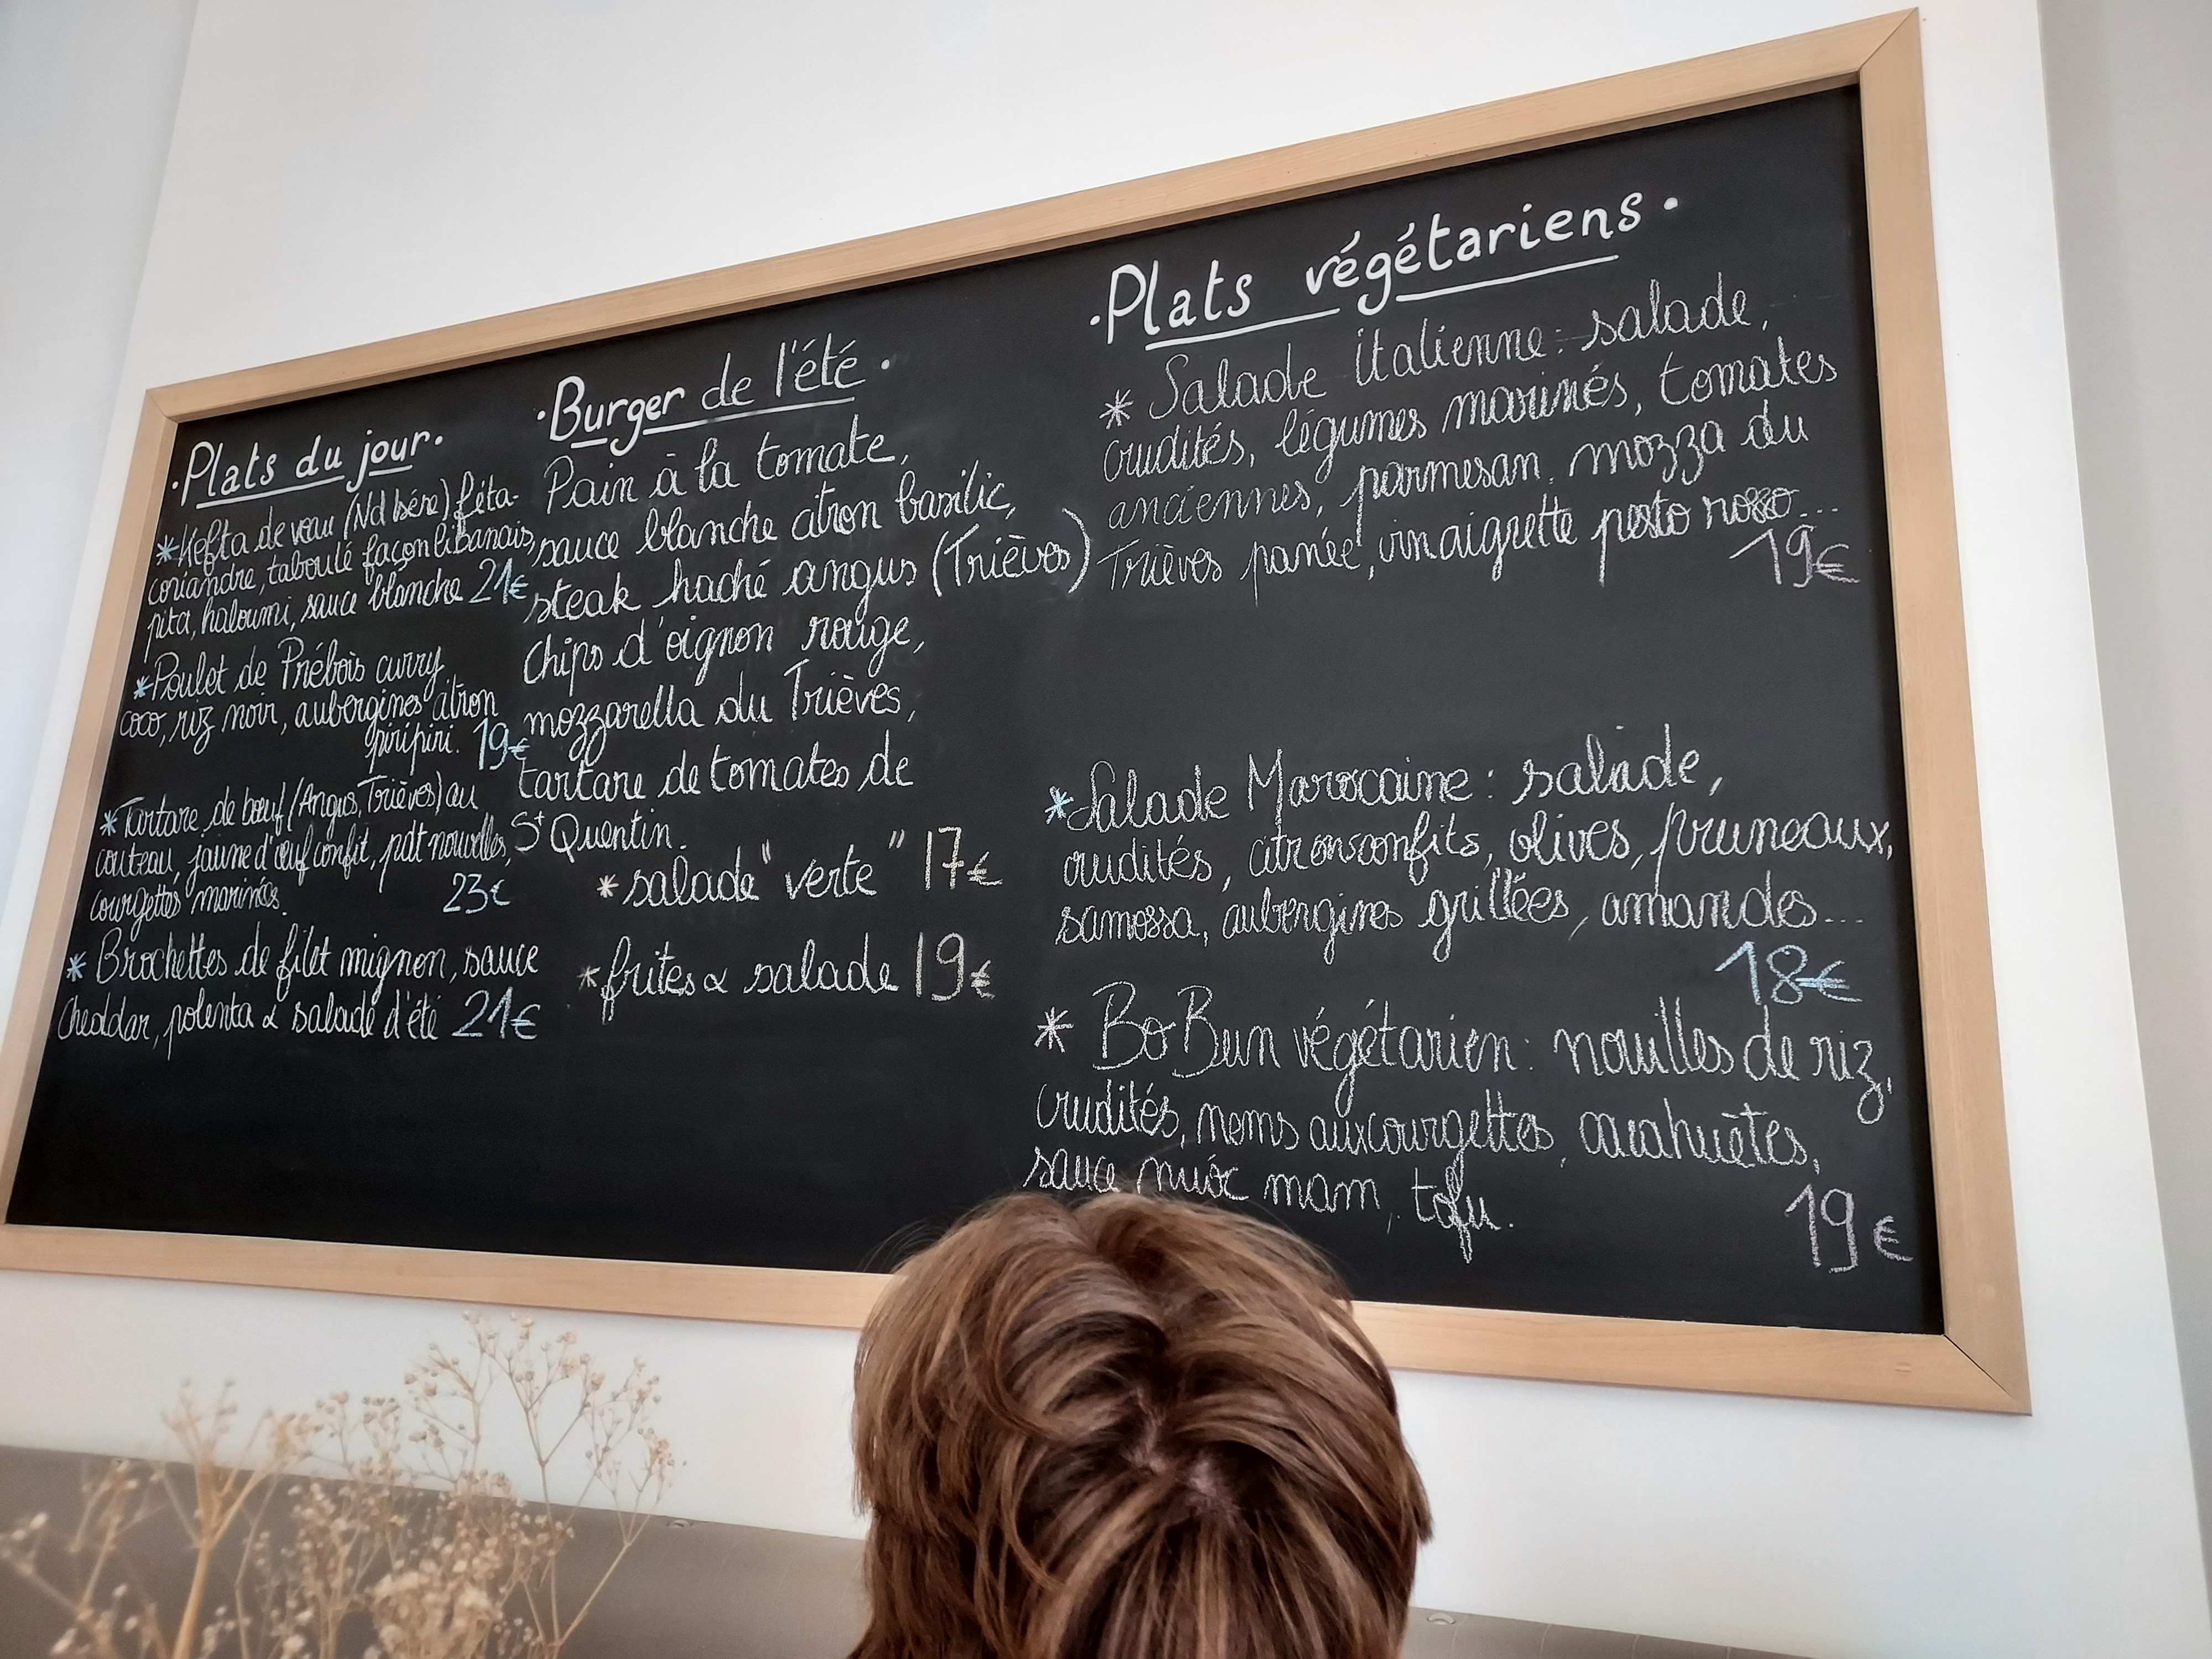 ·Plats du jour·
*Kefta de veau (Nd Isère) féta-
coriandre, taboulé façon libanais,
pita, haloumi, sauce blanche 21€
*Poulet de Prébois curry
coco, riz noir, aubergines citron
piripiri. 19€
*Tartare de bœuf (Angus, Trièves) au
couteau, jaune d'œuf confit, pdt nouvelles,
courgettes marinées. 23€
* Brochettes de filet mignon, sauce
Cheddar, polenta & salade d'été 21€
·Burger de l'été·
Pain à la tomate,
sauce blanche citron basilic,
steak haché angus (Trièves)
chips d'oignon rouge,
mozzarella du Trièves,
tartare de tomates de
St Quentin.
*salade "verte" 17€
*frites & salade 19€
·Plats végétariens·
* Salade italienne: salade,
crudités, légumes marinés, tomates
anciennes, parmesan, mozza du
Trièves panée, vinaigrette pesto rosso...
19€
*Salade Marocaine: salade,
crudités, citrons confits, olives, pruneaux,
samossa, aubergines grillées, amandes...
18€
* BoBun végétarien: nouilles de riz,
crudités, nems aux courgettes, cacahuètes,
sauce nuoc mam, tofu.
19€